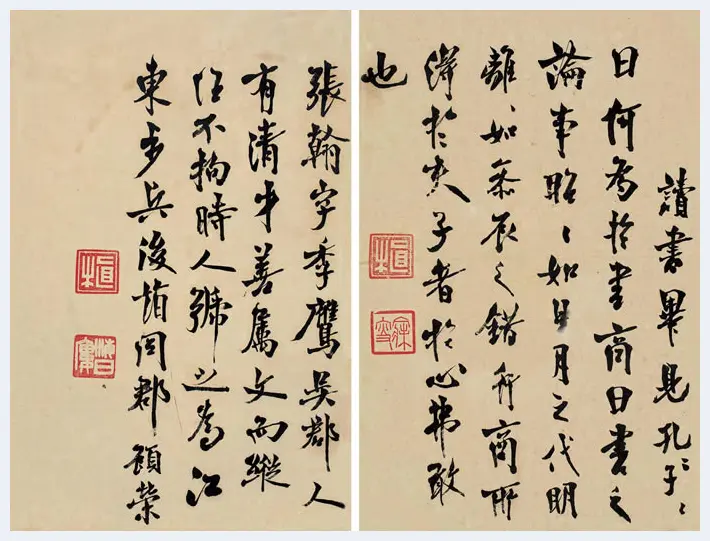 讀書畢見孔〻子〻
曰何為於書商曰書之
論事昭〻如日月之代明
離〻如參辰之錯行商所
得於夫子者於心弗敢
也
張翰字季鷹吳郡人
有清才善屬文而縱
任不拘時人號之為江
東步兵後謂同郡顧榮